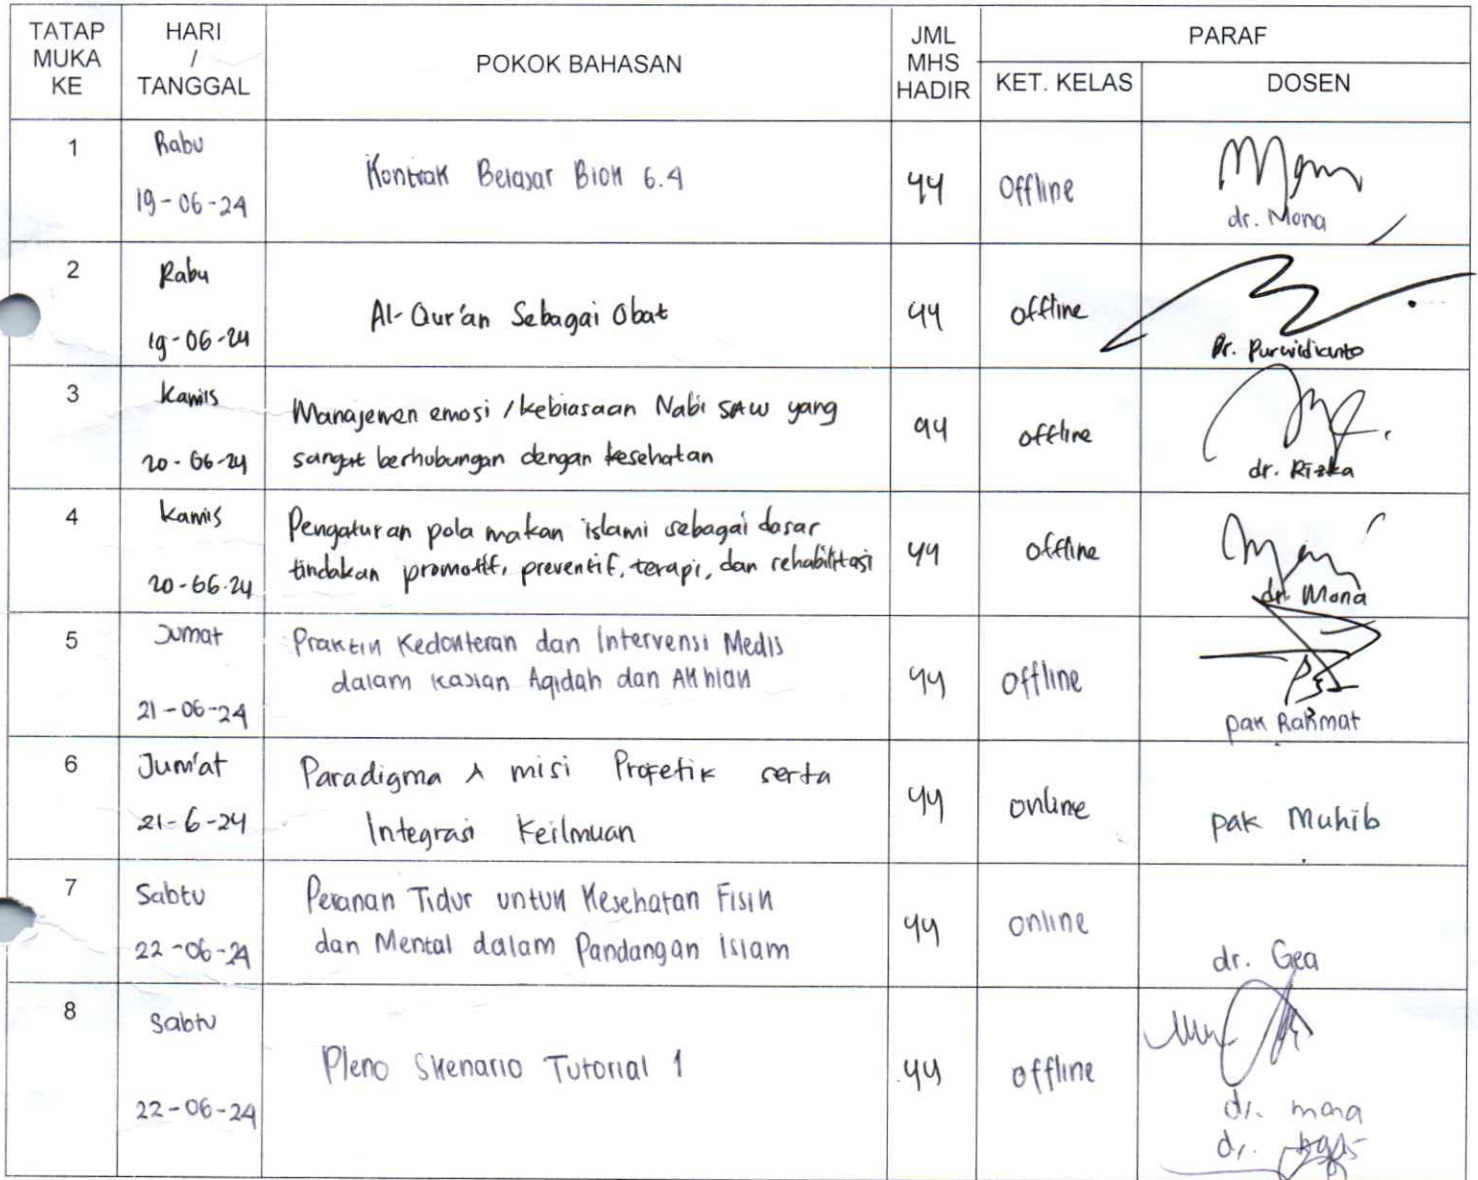 TATAP MUKA KE
HARI / TANGGAL
POKOK BAHASAN
JML MHS HADIR
PARAF
KET. KELAS
DOSEN
1
Rabu
19-06-24
Kontrak Belajar Blok 6.4
44
Offline
dr. Mona
2
Rabu
19-06-24
Al-Qur'an Sebagai Obat
44
offline
Dr. Purwidianto
3
Kamis
20-06-24
Manajemen emosi / kebiasaan Nabi SAW yang
sangat berhubungan dengan kesehatan
44
offline
dr. Rizka
4
Kamis
20-06-24
Pengaturan pola makan islami sebagai dasar
tindakan promotif, preventif, terapi, dan rehabilitasi
44
offline
dr. Mona
5
Jumat
21-06-24
Praktik Kedokteran dan Intervensi Medis
dalam Kajian Aqidah dan Akhlak
44
Offline
pak Rakmat
6
Jum'at
21-6-24
Paradigma & misi Profetik serta
Integrasi Keilmuan
44
online
pak Muhib
7
Sabtu
22-06-24
Peranan Tidur untuk Kesehatan Fisik
dan Mental dalam Pandangan Islam
44
online
dr. Gea
8
Sabtu
22-06-24
Pleno Skenario Tutorial 1
44
offline
dr. mona
dr.